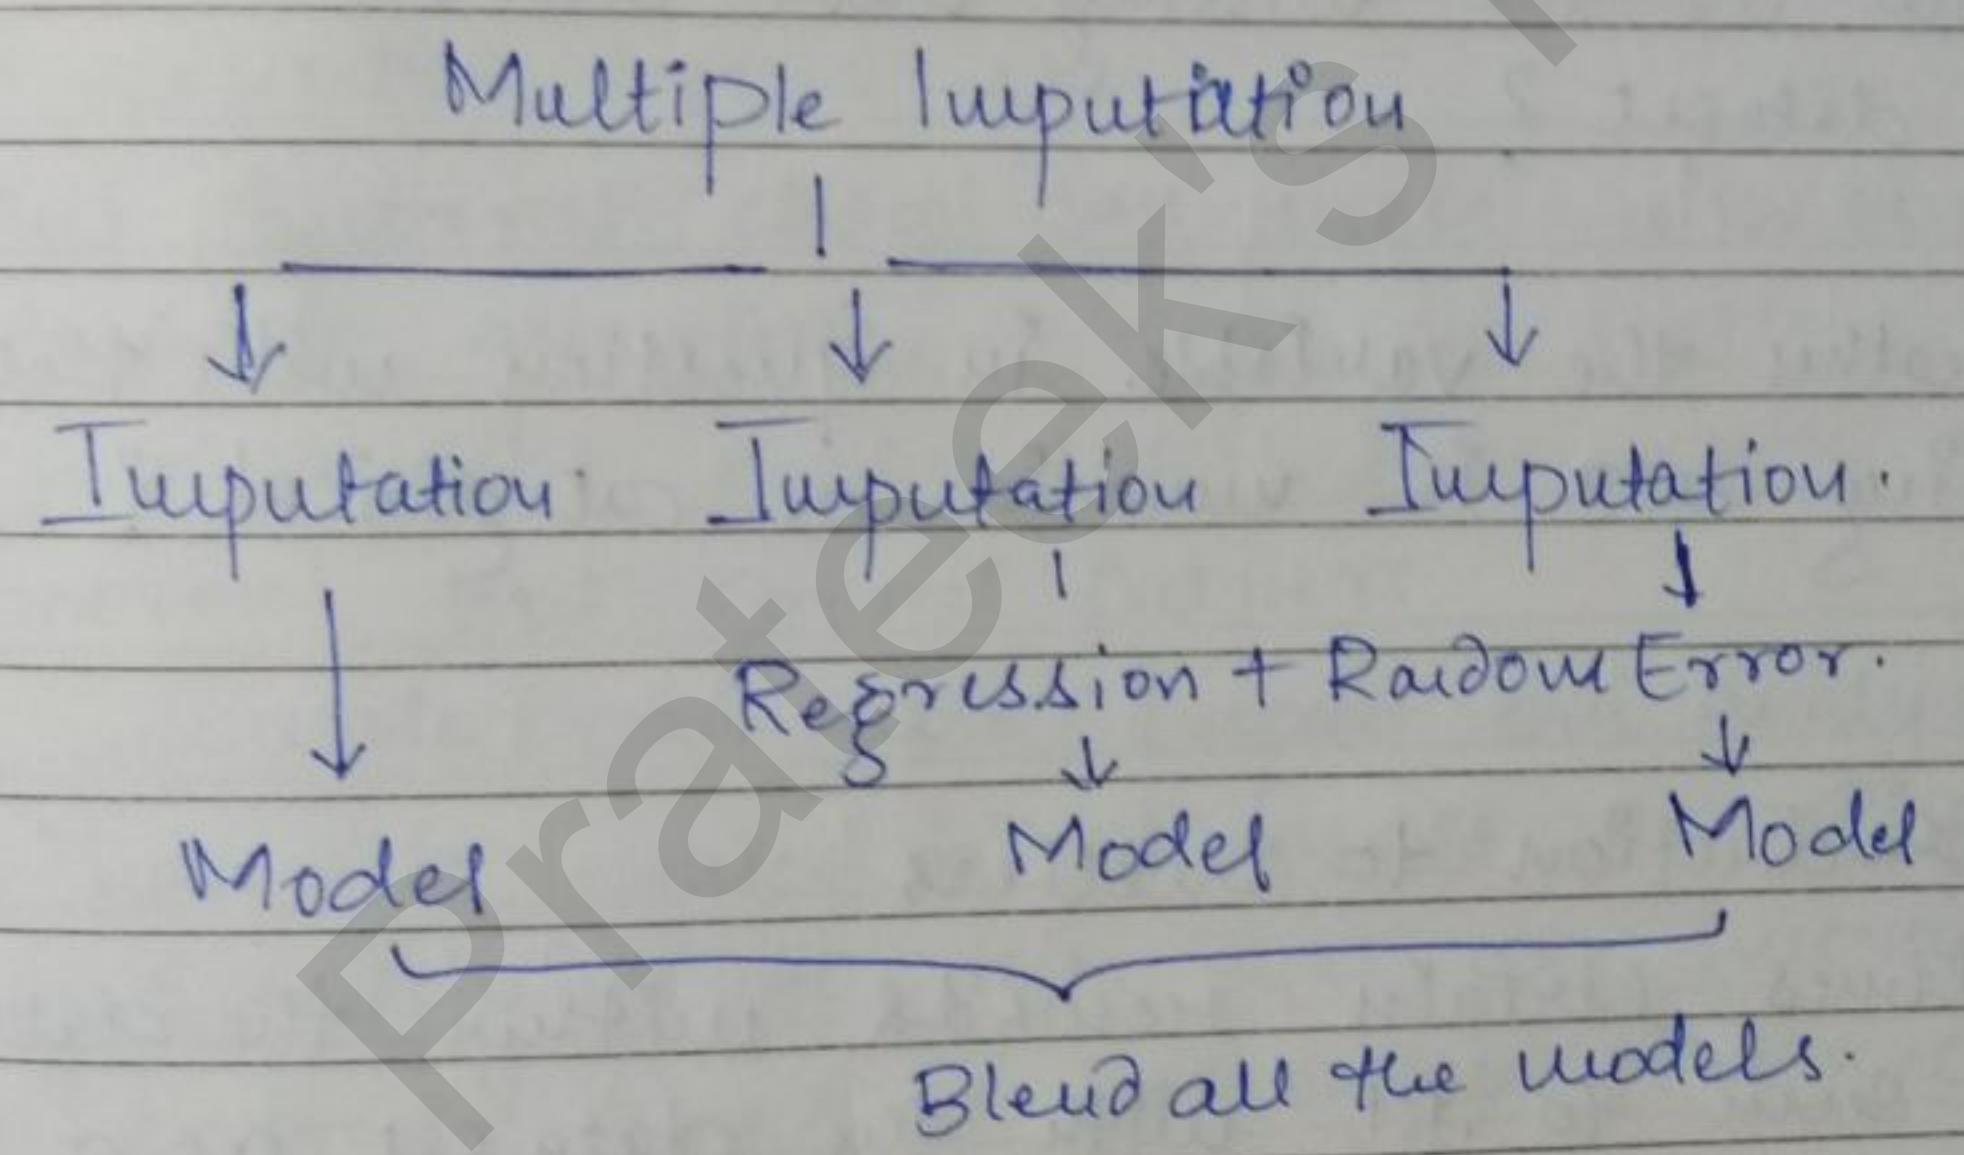 Multiple Imputation
Imputation Imputation Imputation.
Regression + Random Error.
Model Model Model
Blend all the models.
Prateek's